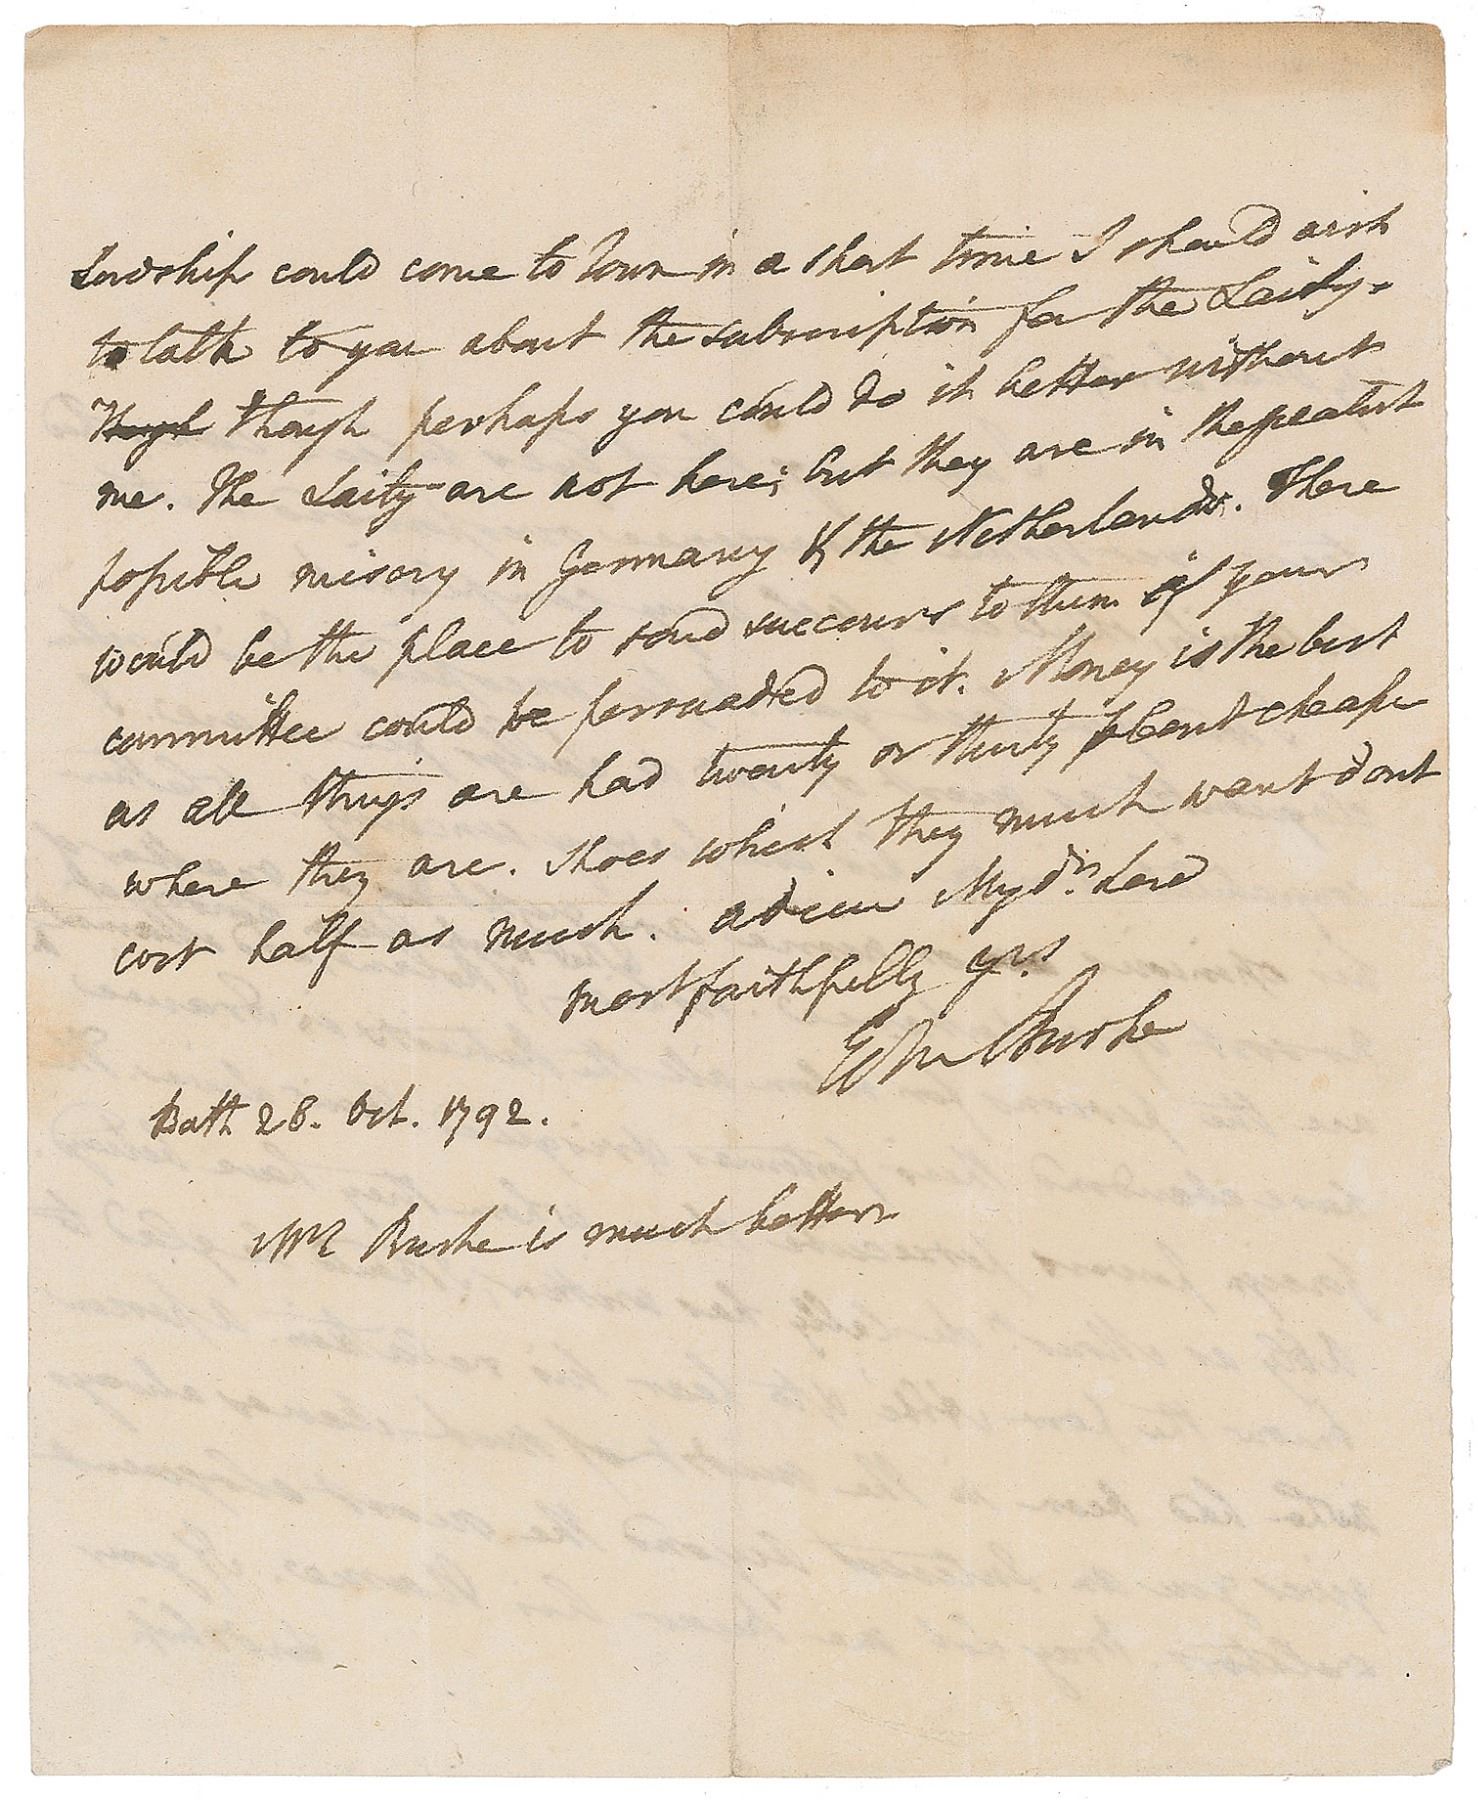 Lordship could come to Town in a short time I should wish
to talk to you about the subscription for the Laity.
Though though perhaps you could do it better without
me. The Laity are not here; but they are in the greatest
possible misery in Germany & the Netherlands. There
would be the place to send succours to them if your
committee could be persuaded to it. Money is the best
as all things are had twenty or thirty pCent cheaper
where they are. Shoes which they much want dont
cost half as much. adieu My dr. Lord
most faithfully yrs
Edm Burke
Bath 28. Oct. 1792.
Mrs Burke is much better